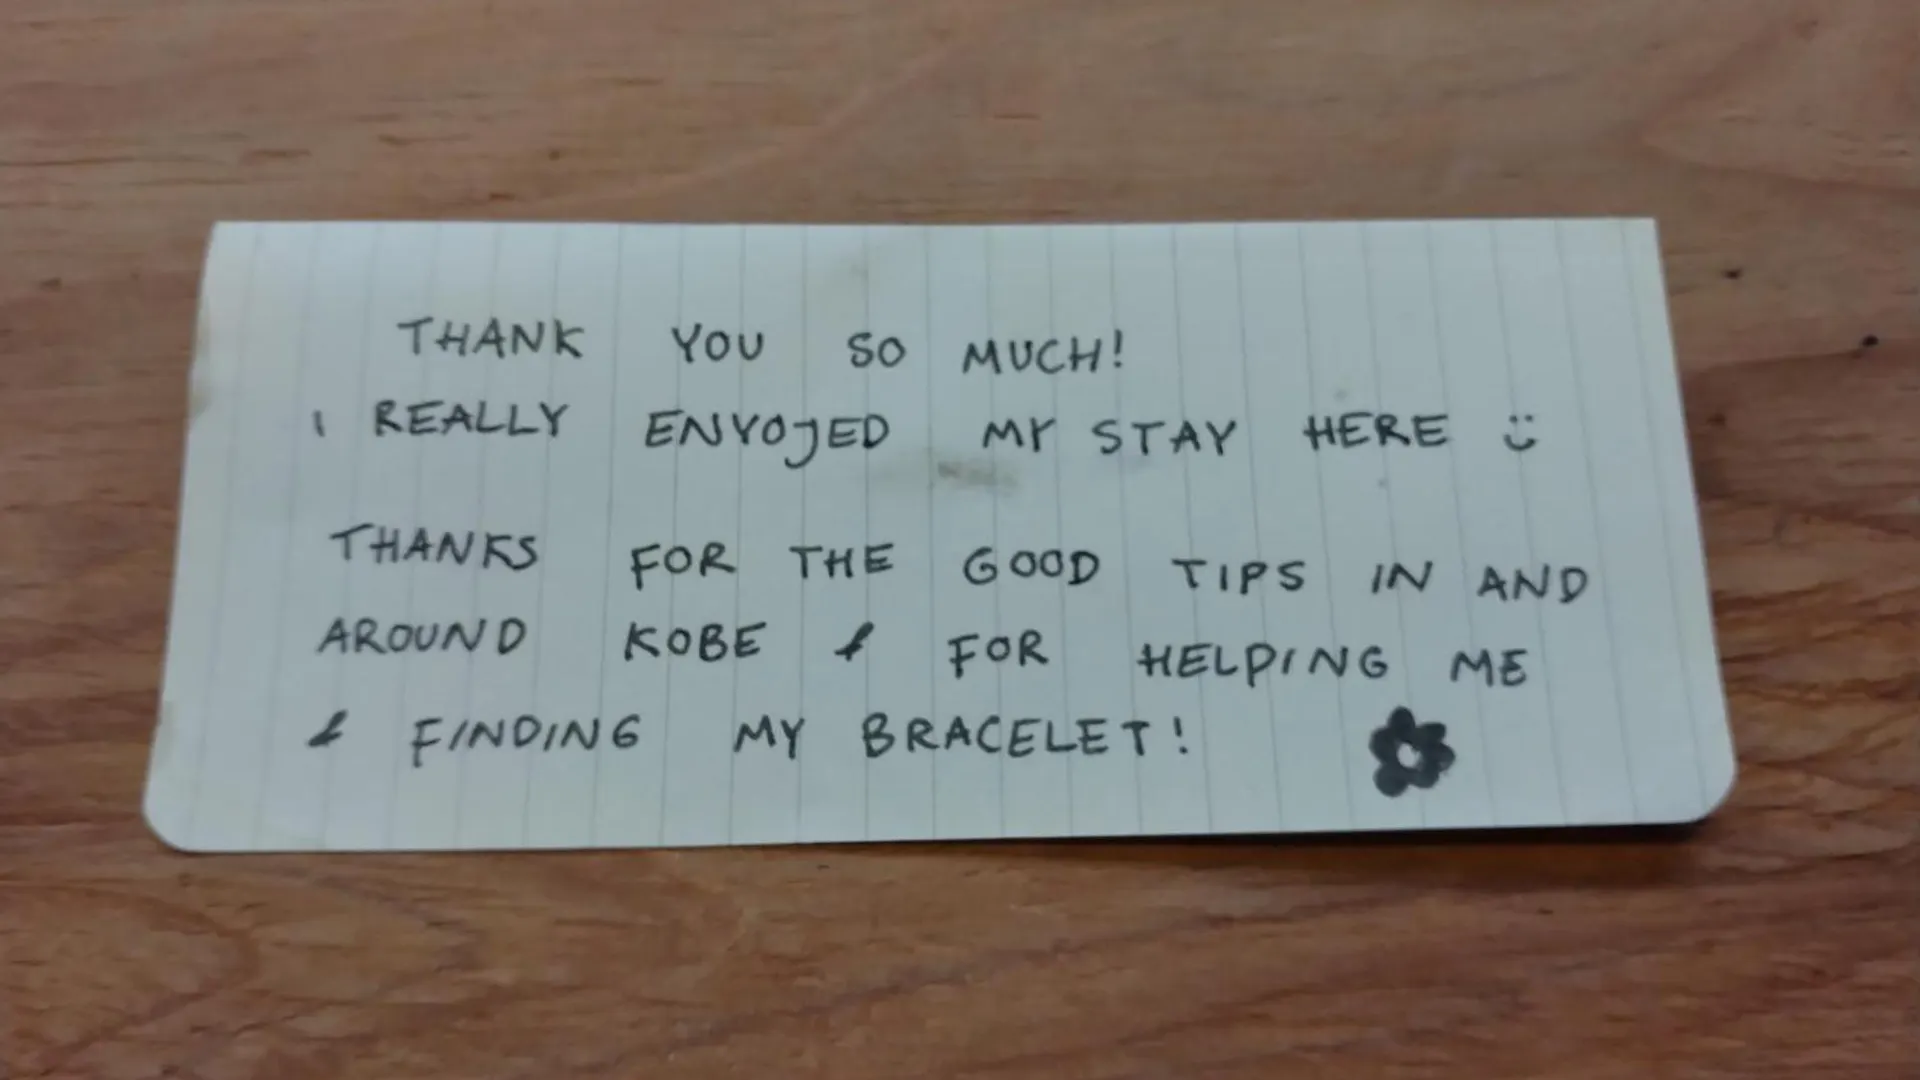 THANK YOU SO MUCH!
I REALLY ENYOJED MY STAY HERE :)
THANKS FOR THE GOOD TIPS IN AND
AROUND KOBE & FOR HELPING ME
& FINDING MY BRACELET!